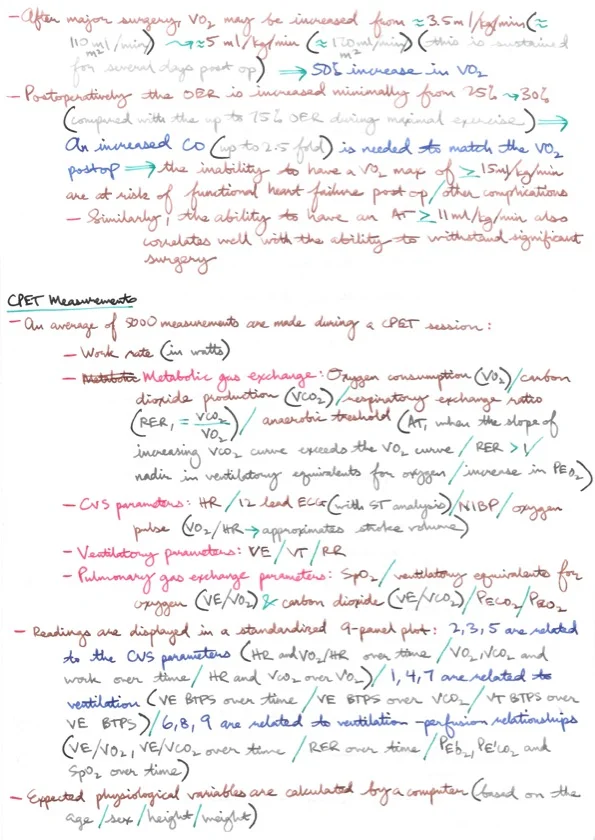 - After major surgery, VO2 may be increased from ≈3.5ml/kg/min (≈
110 ml/min/m2) ⇝ ≈5 ml/kg/min (≈170ml/min/m2) (this is sustained
for several days post op) ⇒ 50% increase in VO2
- Postoperatively the OER is increased minimally from 25% ⇝ 30%
(compared with the up to 75% OER during maximal exercise) ⇒
An increased CO (up to 2.5 fold) is needed to match the VO2
postop ⇒ the inability to have a VO2 max of ≥15ml/kg/min
are at risk of functional heart failure post op/other complications
- Similarly, the ability to have an AT ≥11ml/kg/min also
correlates well with the ability to withstand significant
surgery
CPET Measurements
- An average of 8000 measurements are made during a CPET session:
- Work rate (in watts)
- Metabolic Metabolic gas exchange: Oxygen consumption (VO2)/carbon
dioxide production (VCO2)/respiratory exchange ratio
(RER, = VCO2/VO2)/ anaerobic treshold (AT, when the slope of
increasing VCO2 curve exceeds the VO2 curve/RER >1/
nadir in ventilatory equivalents for oxygen/increase in PEO2)
- CVS parameters: HR/12 lead ECG (with ST analysis)/NIBP/oxygen
pulse (VO2/HR → approximates stroke volume)
- Ventilatory parameters: VE/VT/RR
- Pulmonary gas exchange parameters: SpO2/ventilatory equivalents for
oxygen (VE/VO2) & carbon dioxide (VE/VCO2)/PECO2/PEO2
- Readings are displayed in a standardized 9-panel plot: 2,3,5 are related
to the CVS parameters (HR and VO2/HR over time/VO2,VCO2 and
work over time/HR and VCO2 over VO2)/1,4,7 are related to
ventilation (VE BTPS over time/VE BTPS over VCO2/VT BTPS over
VE BTPS)/6,8,9 are related to ventilation-perfusion relationships
(VE/VO2, VE/VCO2 over time/RER over time/PEO2, PE'CO2 and
SpO2 over time)
- Expected physiological variables are calculated by a computer (based on the
age/sex/height/weight)